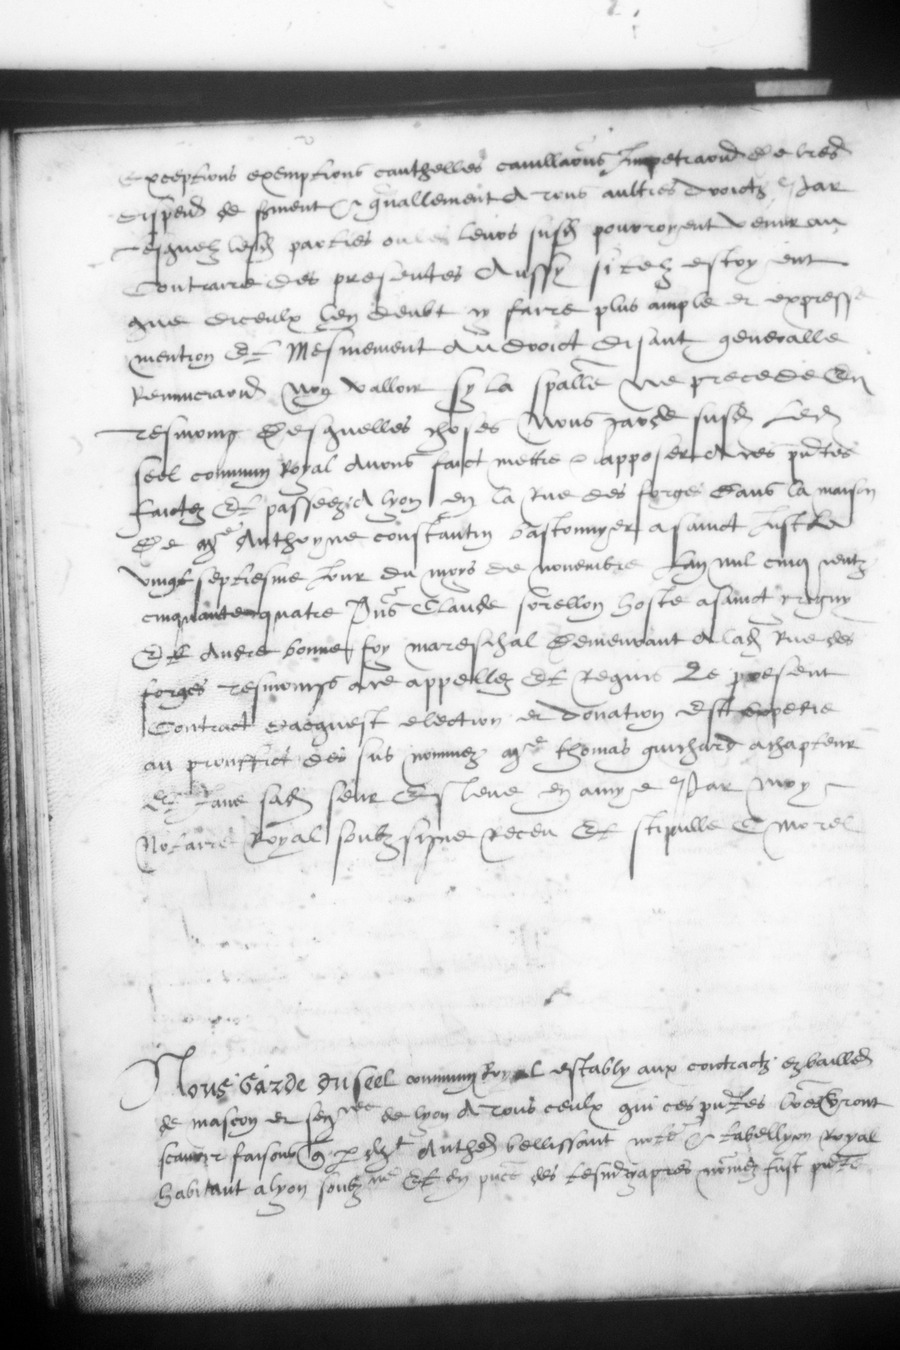 Exceptions exemptions cauthelles cavillaõns Impetraõns de lres
dispens de sment & gñallement A tous aultres droictz Par
lesquelz lesd parties ou leurs susd pourroyent venir au
Contraire des presentes Aussy si telz estoyent
que diceulx len deubt y faire plus ample et expresse
mention Et Mesmement Au droict disant generalle
Renunciaõn Non valloir sy la spalle ne precede En
tesmoing Desquelles choses Nous garde susd Led
seel commun Royal Avons faict mettre & apposer A ces pñtes
faictez Et passeez A lyon en la Rue des forges dans la maison
De me Anthoyne constantin bastonnyer a sainct Just Le
vingt septiesme Jour du moys de novembre Lan mil cinq centz
cinquante quatre Pñs Claude sorellon hoste a sainct yrigny
Et Andre bonnefoy mareschal Demeurant A lad Rue des
forges tesmoings a ce appellez Et requis Le present
Contract dacquest election et donation Est expedie
au prouffict des sus nommez me thomas guichard achapteur
Et Jane sad seur Esleue en amye Par moy
Notaire Royal soubzsigne receu Et stipulle C morel
Nous Garde du seel commun Royal estably aux contractz ez bailled
de mascon et senne de lyon A tous ceulx qui ces pñtes verront
scavoir faisons q par dvt Anthed bellissant notre & tabellyon Royal
habitant a lyon soubzne Et en pñce des tesmgz apres nommez fust pñte